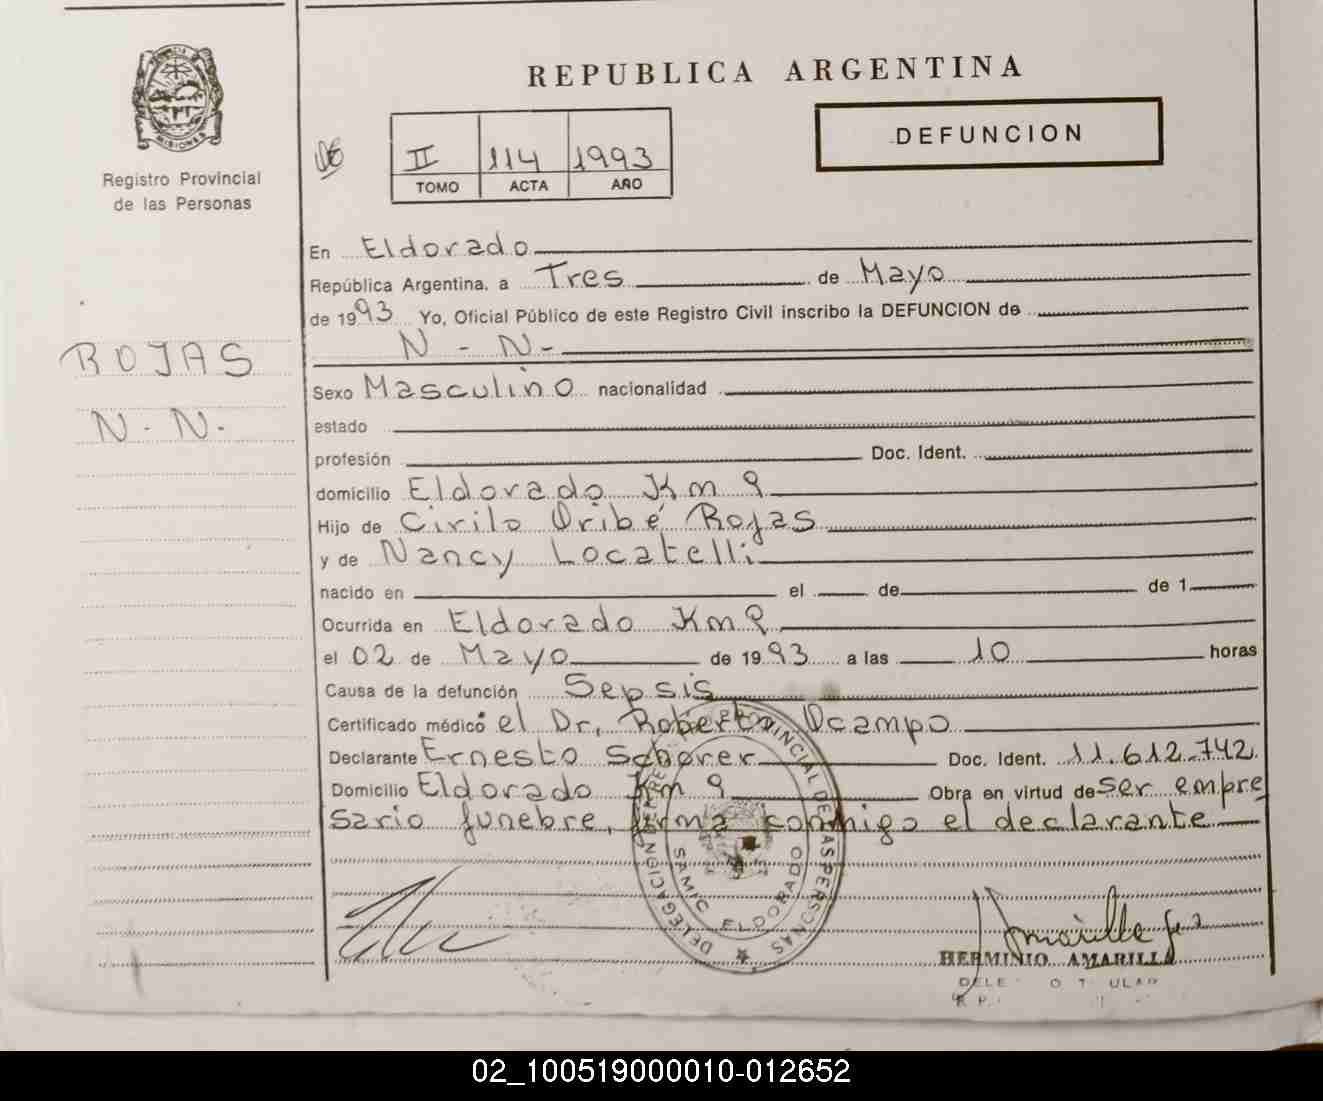 REPUBLICA ARGENTINA
DEFUNCION
MISIONES
Registro Provincial
de las Personas
II 114 1993
TOMO ACTA AÑO
ROJAS
N - N.
En Eldorado
República Argentina, a Tres de Mayo
de 1993 Yo, Oficial Público de este Registro Civil inscribo la DEFUNCION de
N - N -
Sexo Masculino nacionalidad
estado
profesión Doc. Ident.
domicilio Eldorado Km 9
Hijo de Cirilo Oribé Rojas
y de Nancy Locatelli
nacido en el de de 1
Ocurrida en Eldorado Km 9
el 02 de Mayo de 1993 a las 10 horas
Causa de la defunción Sepsis
Certificado médico el Dr. Roberto Ocampo
Declarante Ernesto Scherer Doc. Ident. 11.612.742
Domicilio Eldorado Km 9 Obra en virtud de ser empre
sario funebre, firma conmigo el declarante
PROVINCIAL DE LAS PERSONAS
DELEGACION
SAMIC ELDORADO
HERMINIO AMARILLA
02_100519000010-012652